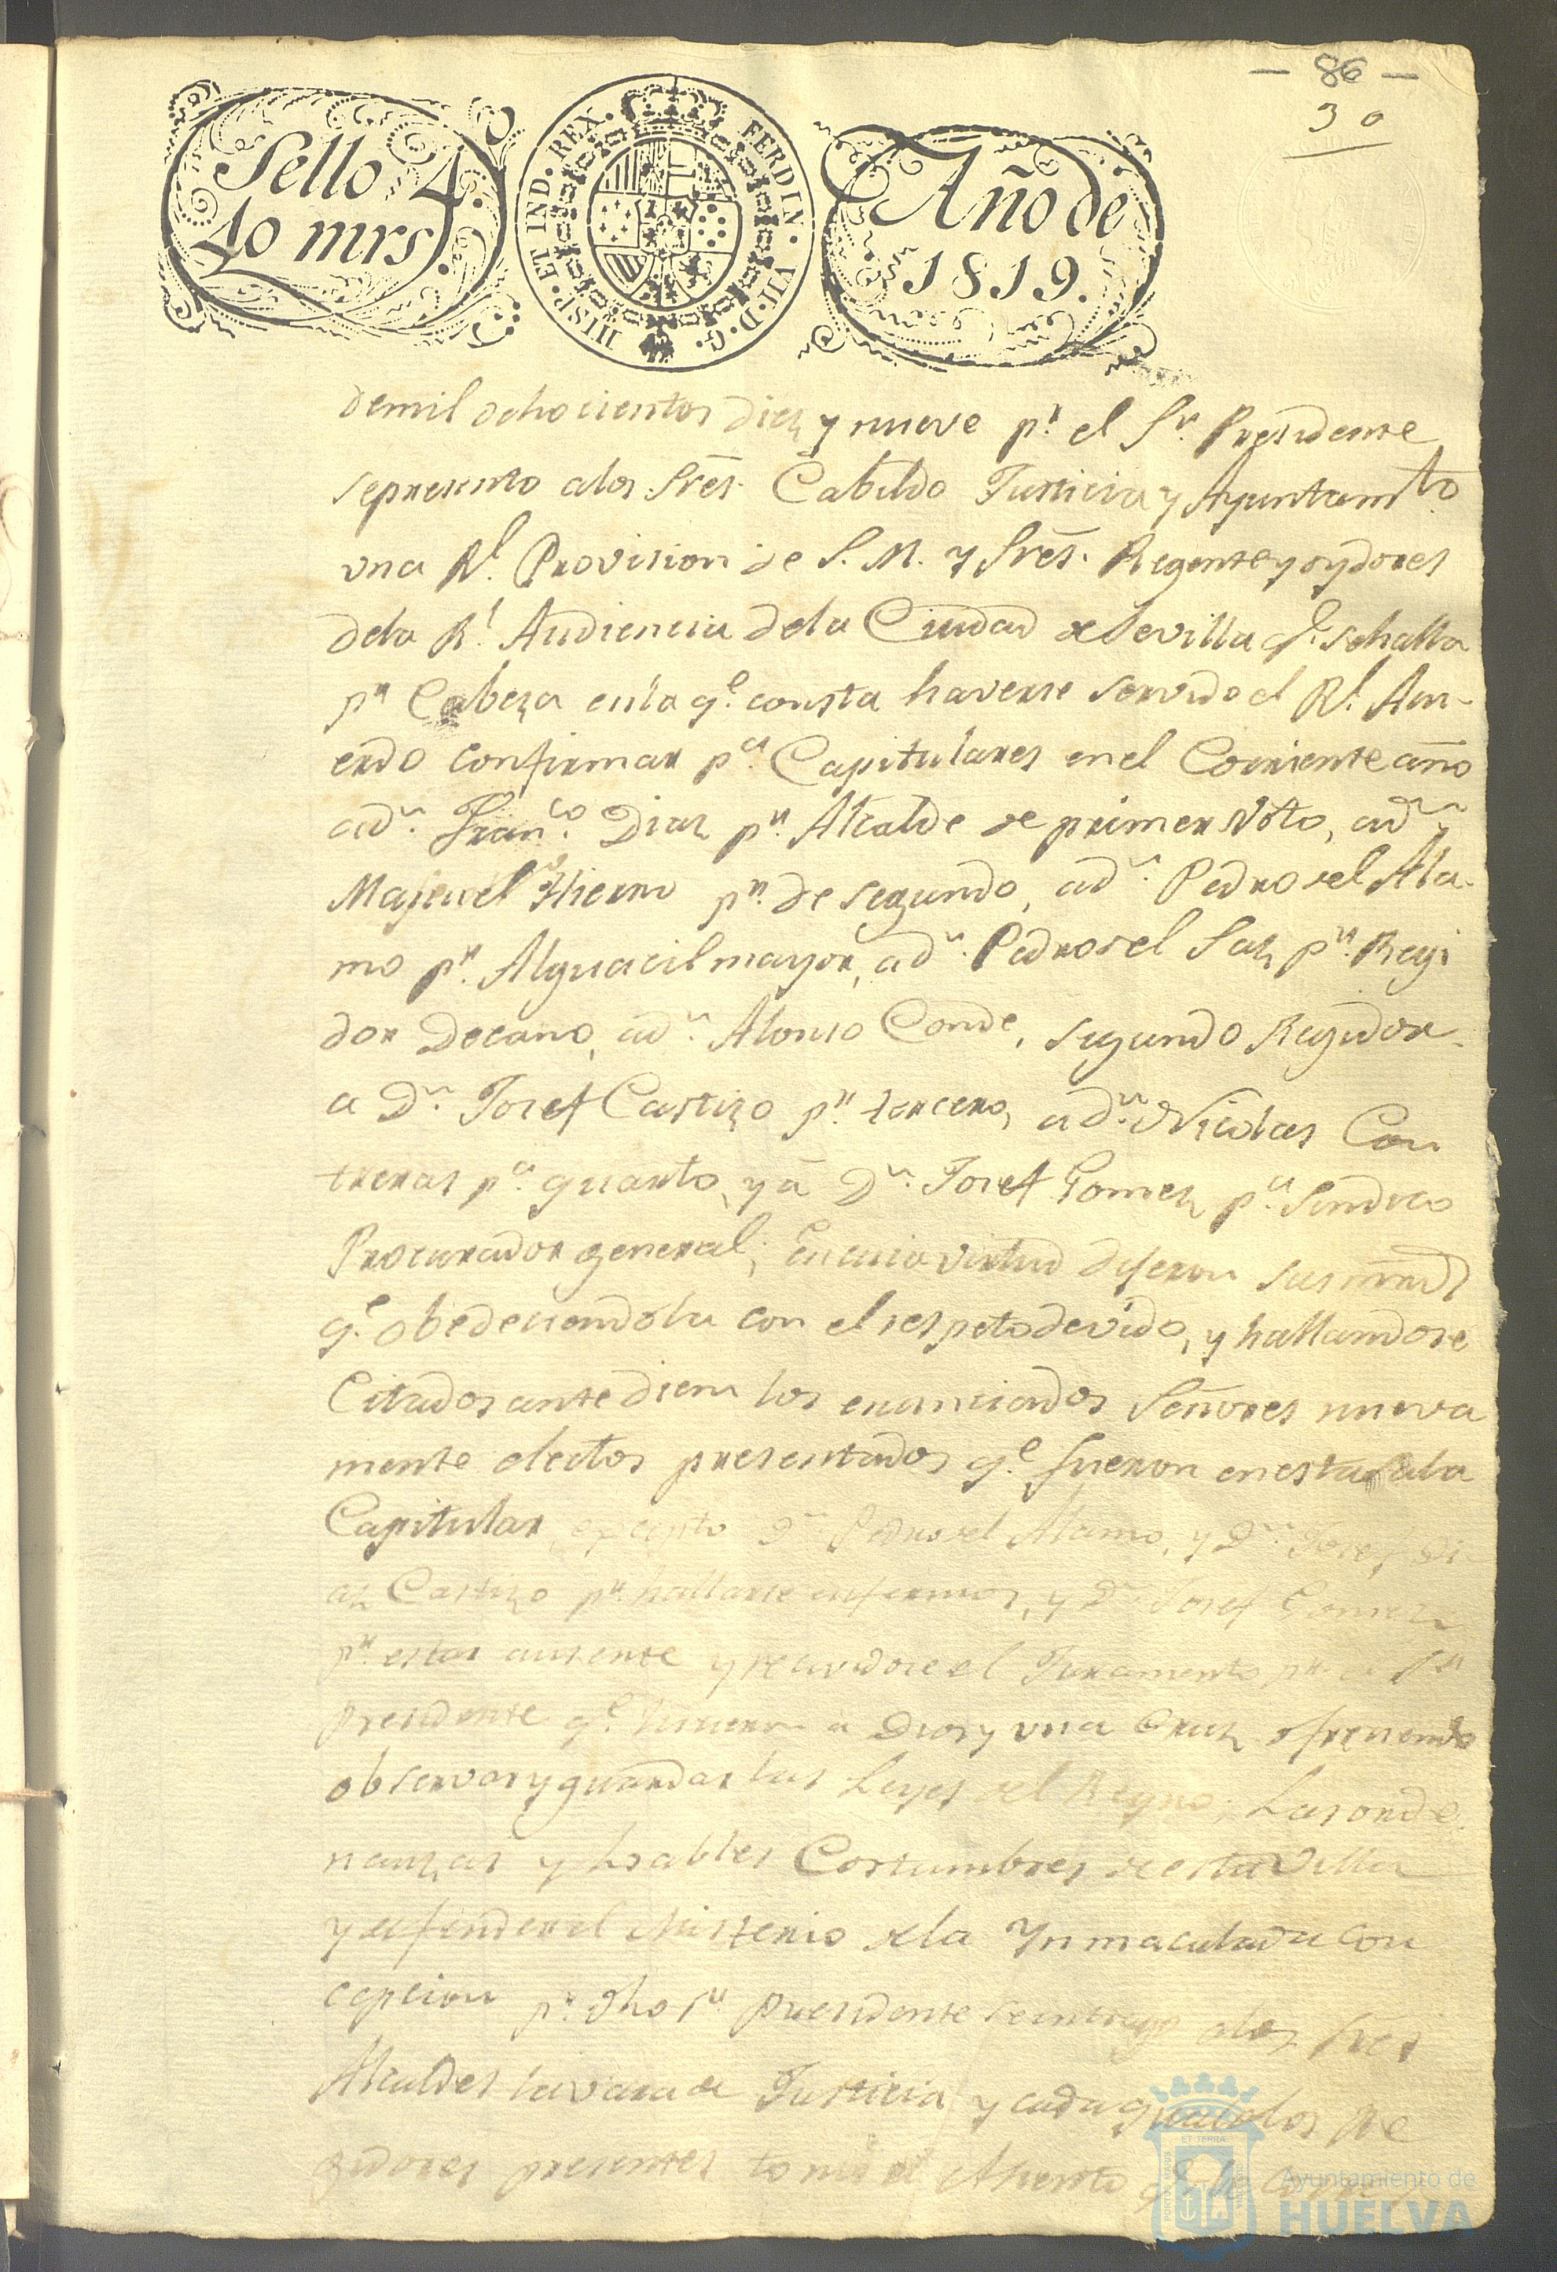 — 86 —
30
Sello 4.
40 mrs.
HISP. ET IND. REX. FERDIN. VII. D. G.
Año de
1819.
demil ochocientos diez y nueve pr. el Sr. Presidente
sepresento alos Sres. Cabildo Justicia y Ayuntamto.
una Rl. Provision de S. M. y Sres. Regente y oydores
dela Rl. Audiencia dela Ciudad de Sevilla qe. sehalla
pr. Cabeza enla qe. consta haverse servido el Rl. Acu-
erdo confirmar pa. Capitulares en el Corriente año
a dn. Franco. Diaz pr. Alcalde de primer Voto, a dn.
del Hierro pr. de segundo, a dn. Pedro del Ala-
mo pr. Alguacil mayor, a dn. Pedro del Saz pr. Regi
dor Decano, a dn. Alonso Conde, segundo Regidor
a Dn. Josef Castizo pr. tercero, a dn. Nicolas Con
treras pa. quarto, y a Dn. Josef Gomez pa. Sindico
Procurador general; en cuia virtud dijeron sus mrds
qe. obedeciendola con el respeto devido, y hallandose
Citados ante diem los enunciados Señores nueva
mente electos presentados qe. fueron en esta Sala
Capitular, excepto Dn. Pedro del Alamo, y Dn. Josef Di
az Castizo pr. hallarse enfermos, y Dn. Josef Gomez
pr. estar ausente y recividose el Juramento pr. el Sr.
Presidente qe. hicieron a Dios y una Cruz ofreciendo
observar y guardar las Leyes del Reyno, Las orde
nanzas y loables Costumbres de esta Villa
y defender el Misterio dela Ynmaculada Con
cepcion pr. dho Sr. Presidente se entrego alos Sres
Alcaldes la vara de Justicia y cada qual de los Re
gidores presentes tomó el Asiento qe. le
Ayuntamiento de
HUELVA